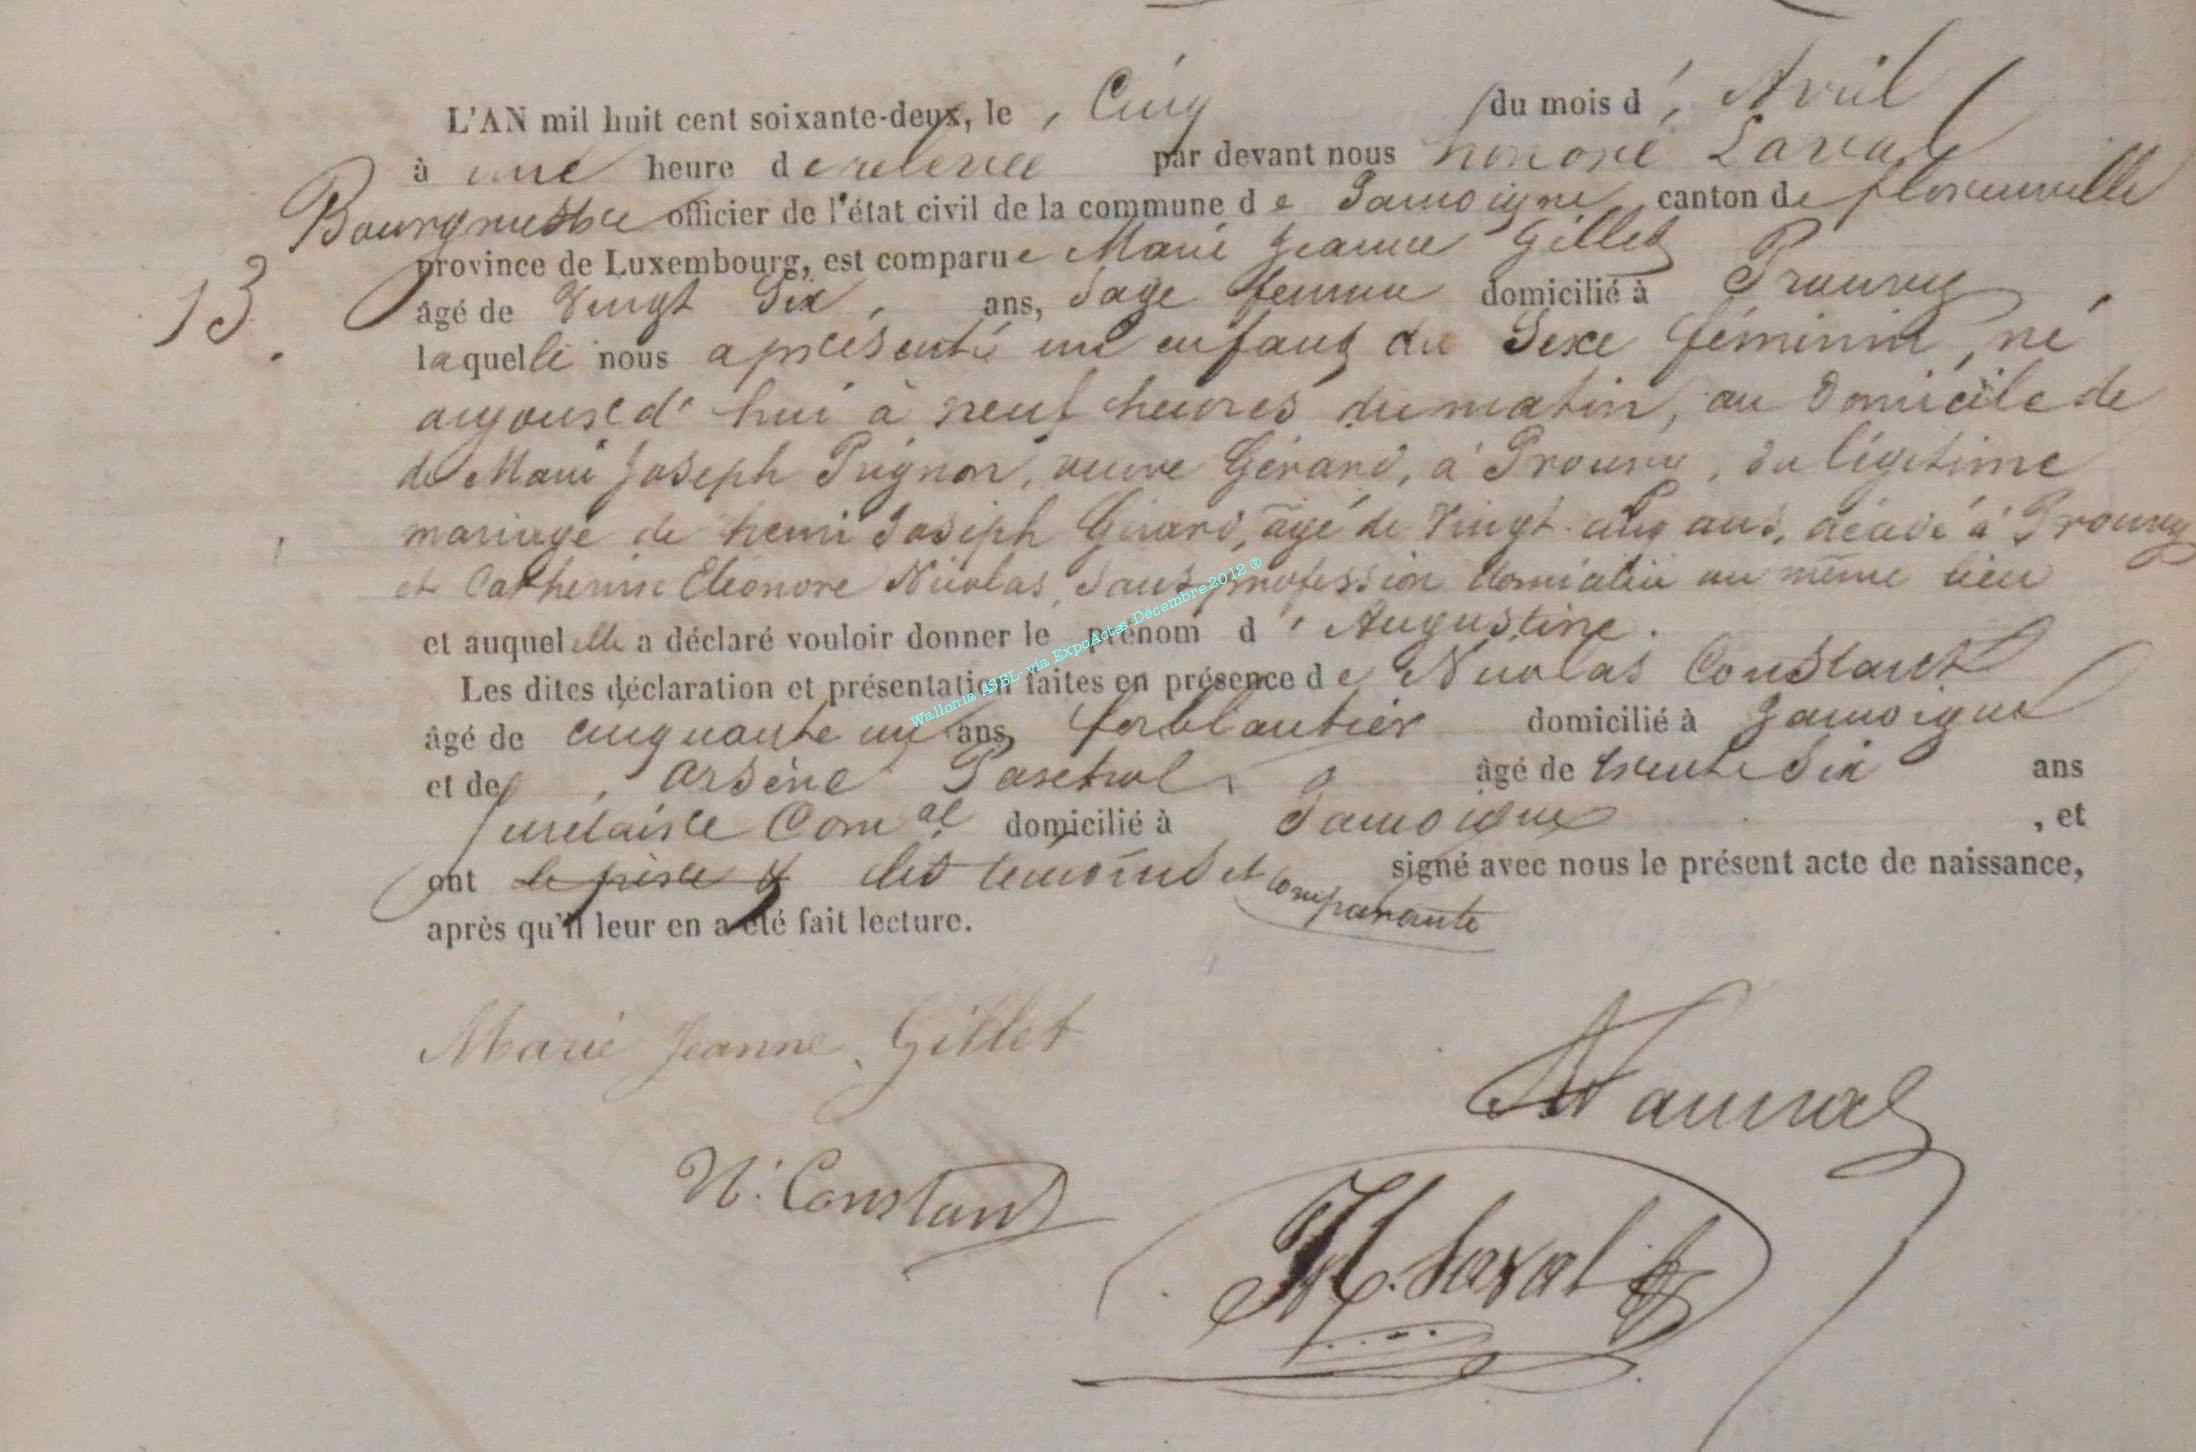 L'AN mil huit cent soixante-deux, le Cinq du mois d'Avril
à une heure de relevée par devant nous honoré Laval
Bourgmestre officier de l'état civil de la commune de Jamoigne, canton de florenville
province de Luxembourg, est comparue Marie Jeanne Gillet
13.
âgé de Vingt Six, ans, Sage femme domicilié à Prouvy,
laquelle nous a présenté un enfant du Sexe féminin, né
aujourd'hui à neuf heures du matin, au Domicile de
de Marie Joseph Pignon, veuve Gérard, à Prouvy, du légitime
mariage de henri Joseph Gérard, âgé de Vingt-cinq ans, décédé à Prouvy
et Catherine Eléonore Nicolas, Sans profession domiciliée au même lieu
et auquel elle a déclaré vouloir donner le prénom d'Augustine.
Les dites déclaration et présentation faites en présence de Nicolas Constant
âgé de cinquante un ans, ferblantier domicilié à Jamoigne
et de Arsène âgé de trente Six ans
Secrétaire Com.al domicilié à Jamoigne, et
ont le père & les témoins et comparante signé avec nous le présent acte de naissance,
après qu'il leur en a été fait lecture.
Marie Jeanne Gillet
N. Constant
H. Laval
Wallonia ASBL via ExpoActes Décembre 2012 ®